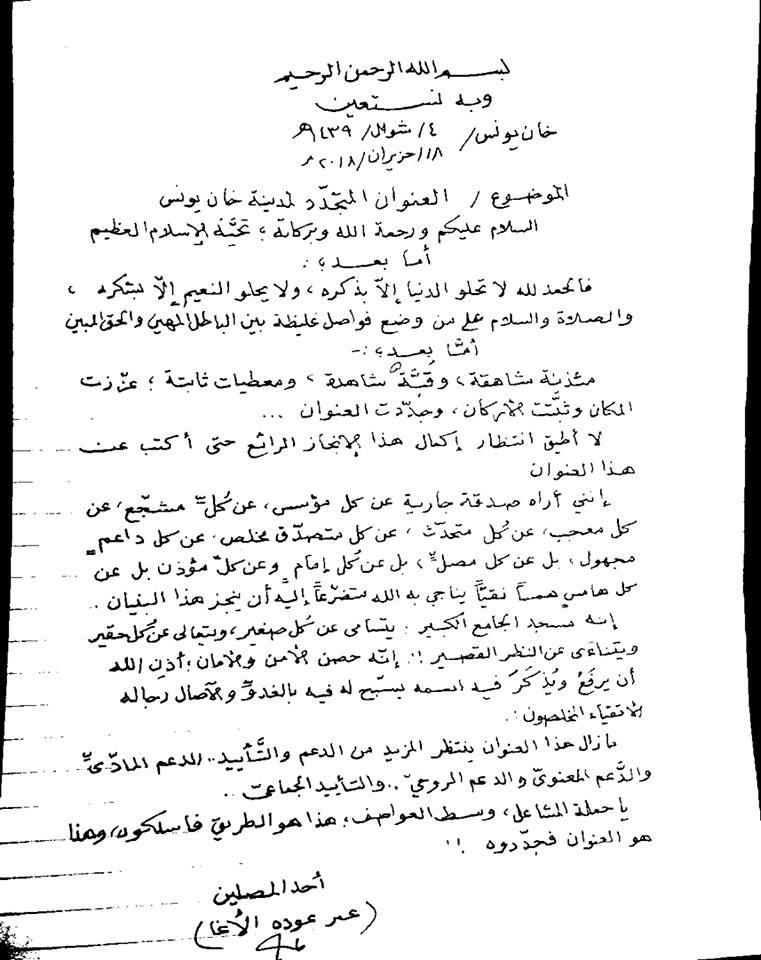 بسم الله الرحمن الرحيم
وبه نستعين
خان يونس / ٤ / شوال / ١٤٣٩هـ
١٨ / حزيران / ٢٠١٨م
الموضوع / العنوان المتجدّد لمدينة خان يونس
السلام عليكم ورحمة الله وبركاته ؛ تحيّة الإسلام العظيم
أما بعد ؛ :
فالحمد لله لا تحلو الدنيا إلاّ بذكره ، ولا يحلو النعيم إلاّ بشكره ،
والصلاة والسلام على من وضع فواصل غليظة بين الباطل المهين والحق المبين
أمّا بعد ؛ :-
مئذنة شاهقة ، وقبّة شاهدة ، ومعطيات ثابتة ؛ عزّزت
المكان وثبّتت الأركان ، وجدّدت العنوان ...
لا أطيق انتظار إكمال هذا الإنجاز الرائع حتى أكتب عن
هذا العنوان
إنني أراه صدقة جارية عن كل مؤسس ، عن كُلّ مشجّع ، عن
كل معجب ، عن كُل متحدّث ، عن كل متصدّق مخلص ، عن كل داعم
مجهول ، بل عن كل مصلٍّ ، بل عن كُل إمام وعن كلّ مؤذن بل عن
كل هامسٍ همساً نقيّاً يناجي به الله متضرّعاً إليه أن ينجز هذا البنيان ..
إنه مسجد الجامع الكبير . يتسامى عن كُل صغير ، ويتعالى عن كُل حقير
ويتناءى عن النظر القصير !! . إنّه حصن الأمن والأمان ؛ أذِن الله
أن يرفَعَ ويُذكَرَ فيه اسمه يسبّح له فيه بالغدوِّ والآصال رجاله
الأتقياء المخلصون .
مازال هذا العنوان ينتظر المزيد من الدعم والتَّأييد .. الدعم المادّيّ
والدَّعم المعنويّ والدعم الروحيّ .. والتأييد الجماعيّ ..
يا حملة المشاعل ، وسط العواصف ؛ هذا هو الطريق فاسلكوه ، وهذا
هو العنوان فجدّدوه !!
أحد المصلين
(عمر عوده الأغا)